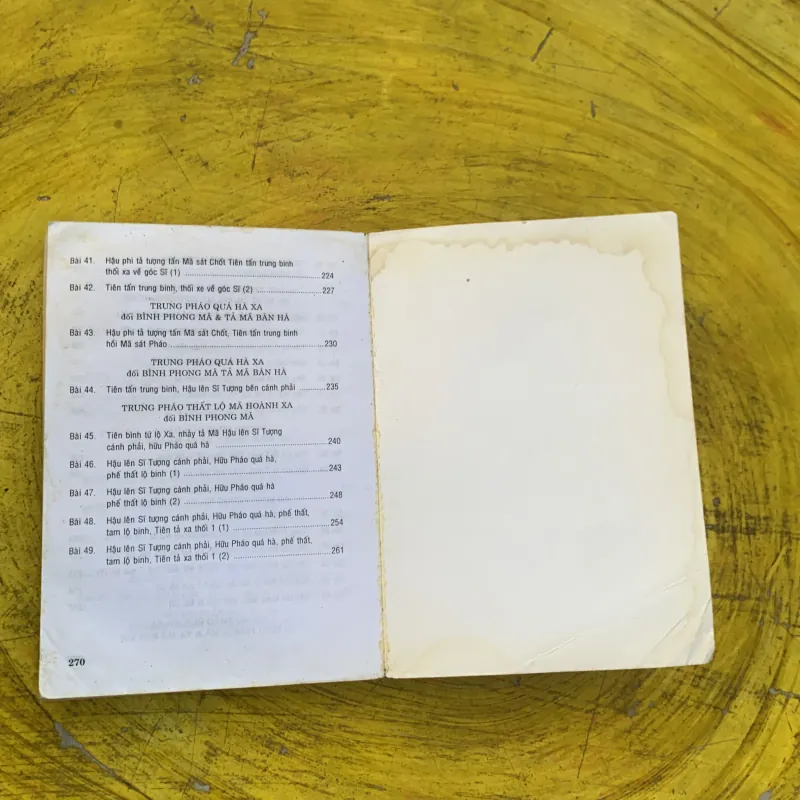 Bài 41. Hậu phi tả tượng tấn Mã sát Chốt Tiên tấn trung binh
thối xa về góc Sĩ (1) ........ 224
Bài 42. Tiên tấn trung binh, thối xe về góc Sĩ (2) ........ 227
TRUNG PHÁO QUÁ HÀ XA
đối BÌNH PHONG MÃ & TẢ MÃ BÀN HÀ
Bài 43. Hậu phi tả tượng tấn Mã sát Chốt, Tiên tấn trung binh
hồi Mã sát Pháo ........ 230
TRUNG PHÁO QUÁ HÀ XA
đối BÌNH PHONG MÃ TẢ MÃ BÀN HÀ
Bài 44. Tiên tấn trung binh, Hậu lên Sĩ Tượng bên cánh phải ........ 235
TRUNG PHÁO THẤT LỘ MÃ HOÀNH XA
đối BÌNH PHONG MÃ
Bài 45. Tiên bình tứ lộ Xa, nhảy tả Mã Hậu lên Sĩ Tượng
cánh phải, hữu Pháo quá hà ........ 240
Bài 46. Hậu lên Sĩ Tượng cánh phải, Hữu Pháo quá hà,
phế thất lộ binh (1) ........ 243
Bài 47. Hậu lên Sĩ Tượng cánh phải, Hữu Pháo quá hà
phế thất lộ binh (2) ........ 248
Bài 48. Hậu lên Sĩ tượng cánh phải, Hữu Pháo quá hà, phế thất,
tam lộ binh, Tiên tả xa thối 1 (1) ........ 254
Bài 49. Hậu lên Sĩ Tượng cánh phải, Hữu Pháo quá hà, phế thất,
tam lộ binh, Tiên tả xa thối 1 (2) ........ 261
270